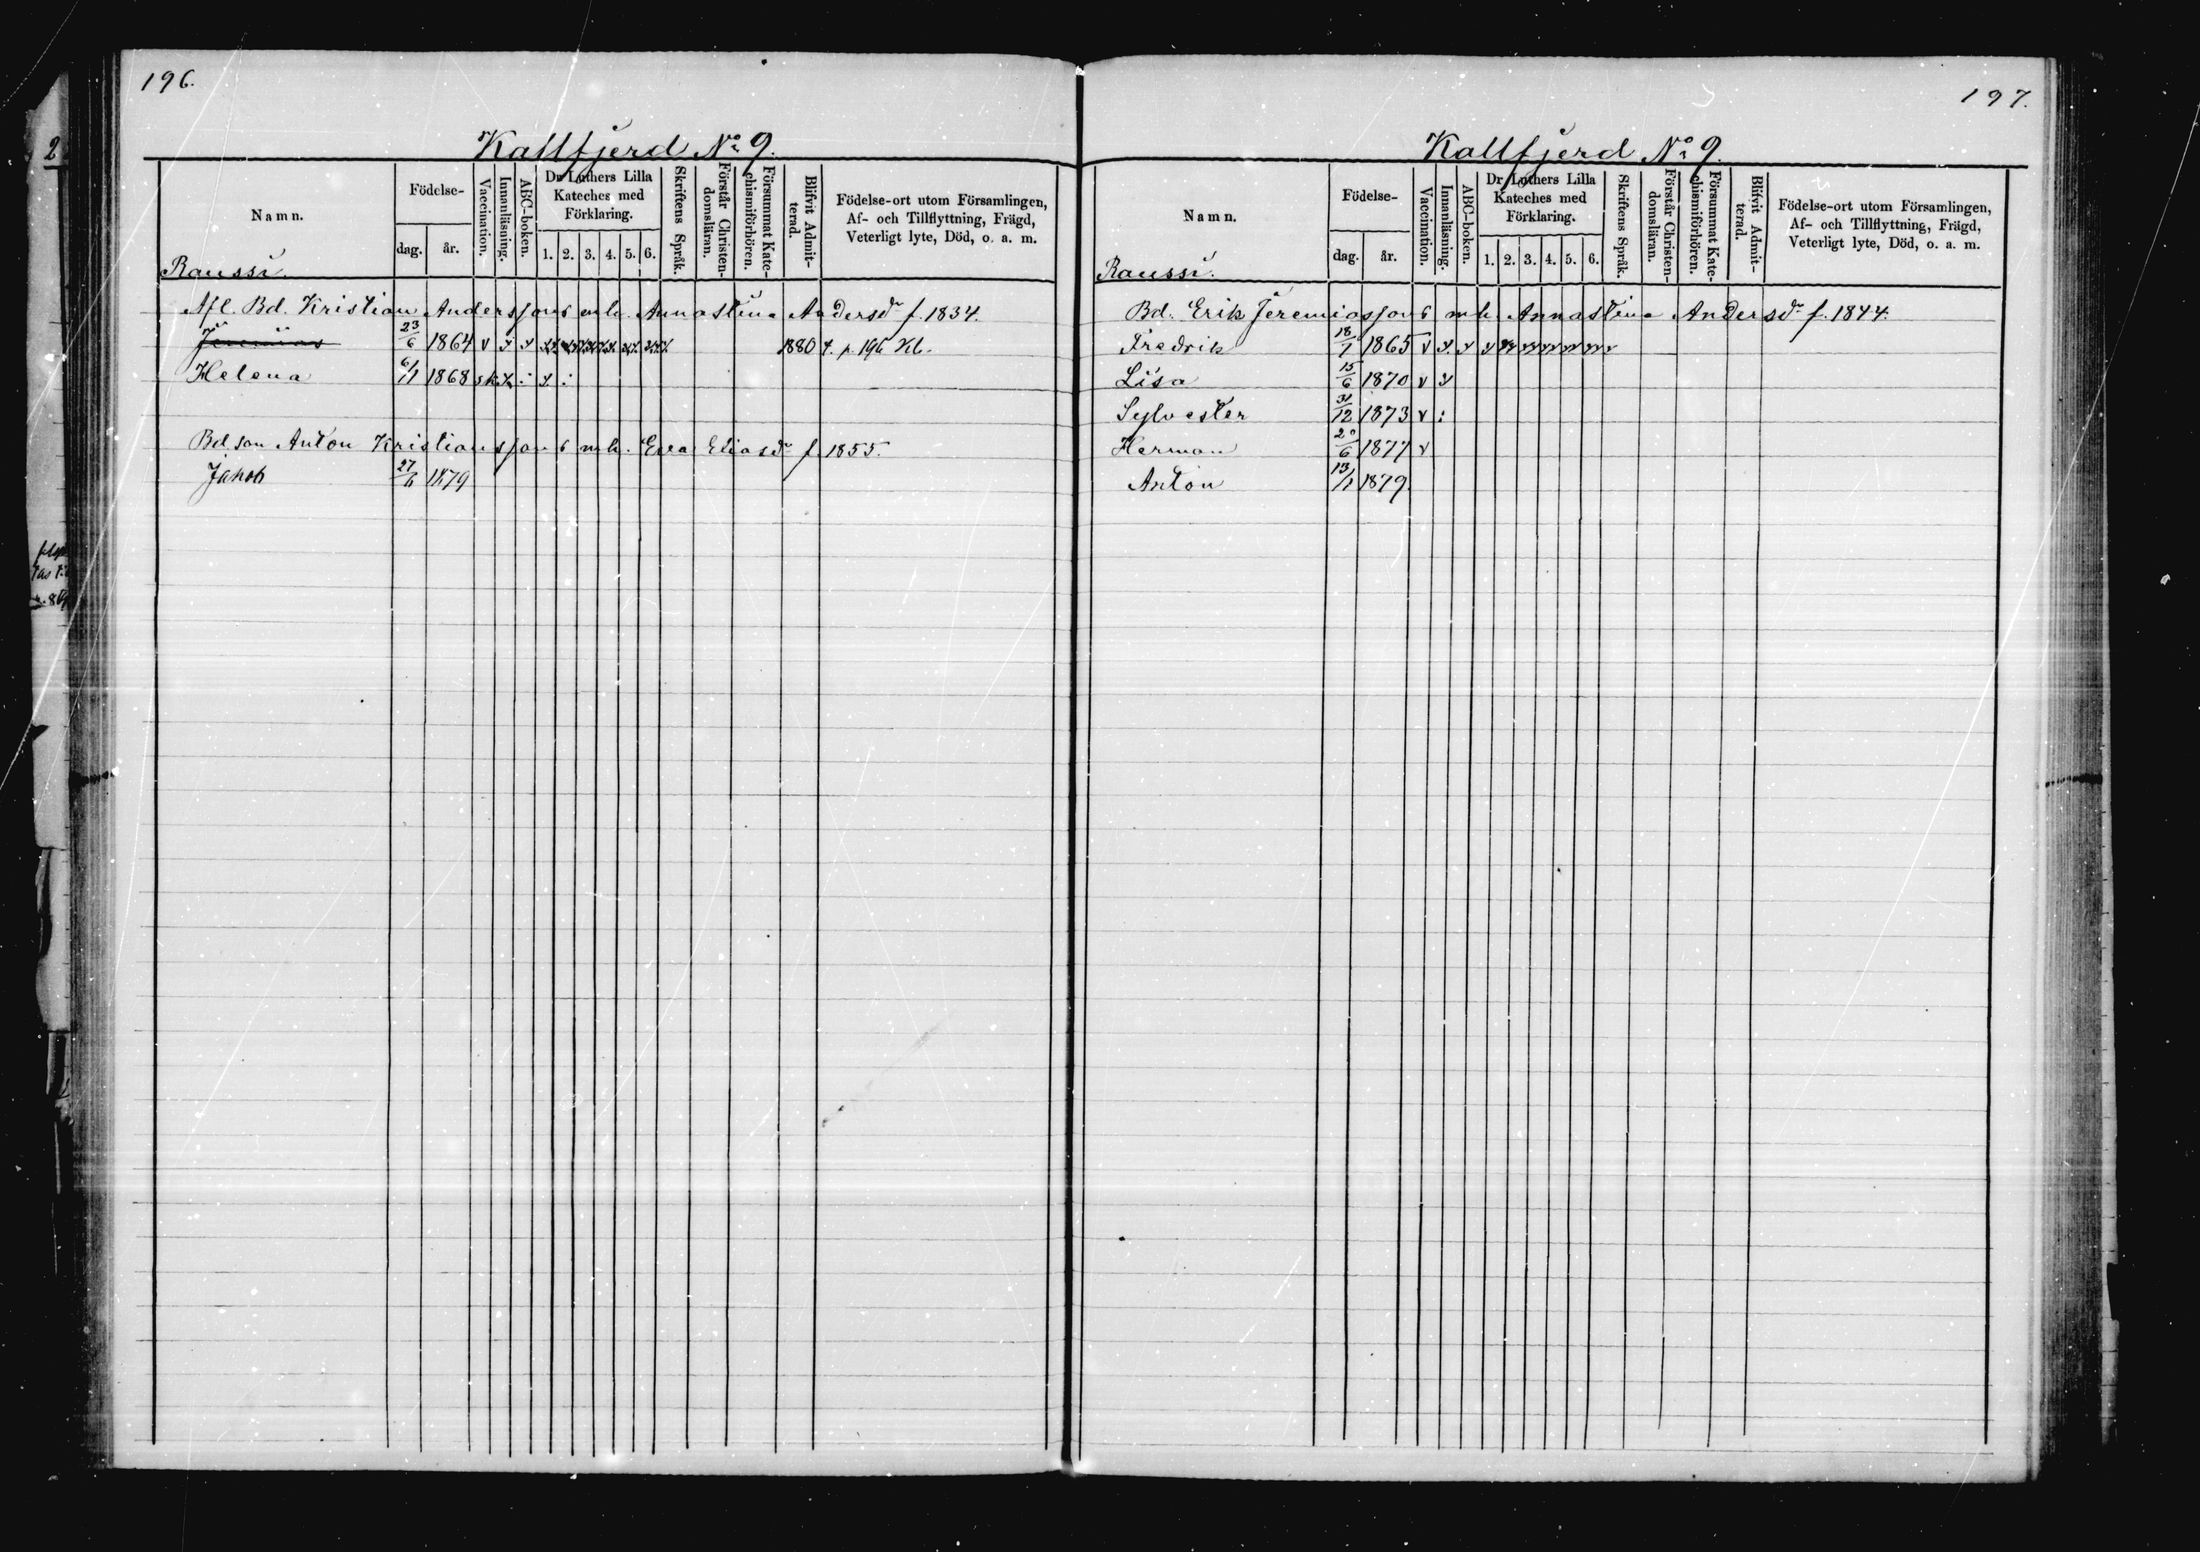 196.
Kallfjerd No 9.
Namn.
Födelse-
dag. år.
Vaccination.
Innanläsning.
ABC-boken.
Dr Luthers Lilla Kateches med Förklaring.
1. 2. 3. 4. 5. 6.
Skriftens Språk.
Förstår Christendomsläran.
Försummat Katechismiförhören.
Blifvit Admitterad.
Födelse-ort utom Församlingen,
Af- och Tillflyttning, Frägd,
Veterligt lyte, Död, o. a. m.
Raussi.
Afl. Bd. Kristian Anderssons enk. Annastina Andersdr f. 1834.
Jeremias 23/6 1864 v 1880 f. p. 196 Kb.
Helena 6/11 1868
Bd. son Anton Kristianssons mh. Eva Eliasdr f. 1855.
Jakob 27/11 1879
197.
Kallfjerd No 9.
Namn.
Födelse-
dag. år.
Vaccination.
Innanläsning.
ABC-boken.
Dr Luthers Lilla Kateches med Förklaring.
1. 2. 3. 4. 5. 6.
Skriftens Språk.
Förstår Christendomsläran.
Försummat Katechismiförhören.
Blifvit Admitterad.
Födelse-ort utom Församlingen,
Af- och Tillflyttning, Frägd,
Veterligt lyte, Död, o. a. m.
Raussi.
Bd. Erik Jeremiassons mh. Annastina Andersdr f. 1844.
Fredrik 18/1 1865 v
Lisa 15/6 1870 v
Sylvester 31/12 1873 v
Herman 20/6 1877 v
Anton 13/1 1879.